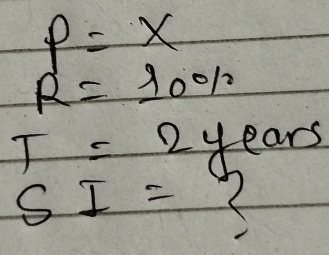 P = X
R = 10%
T = 2 years
S I = ?